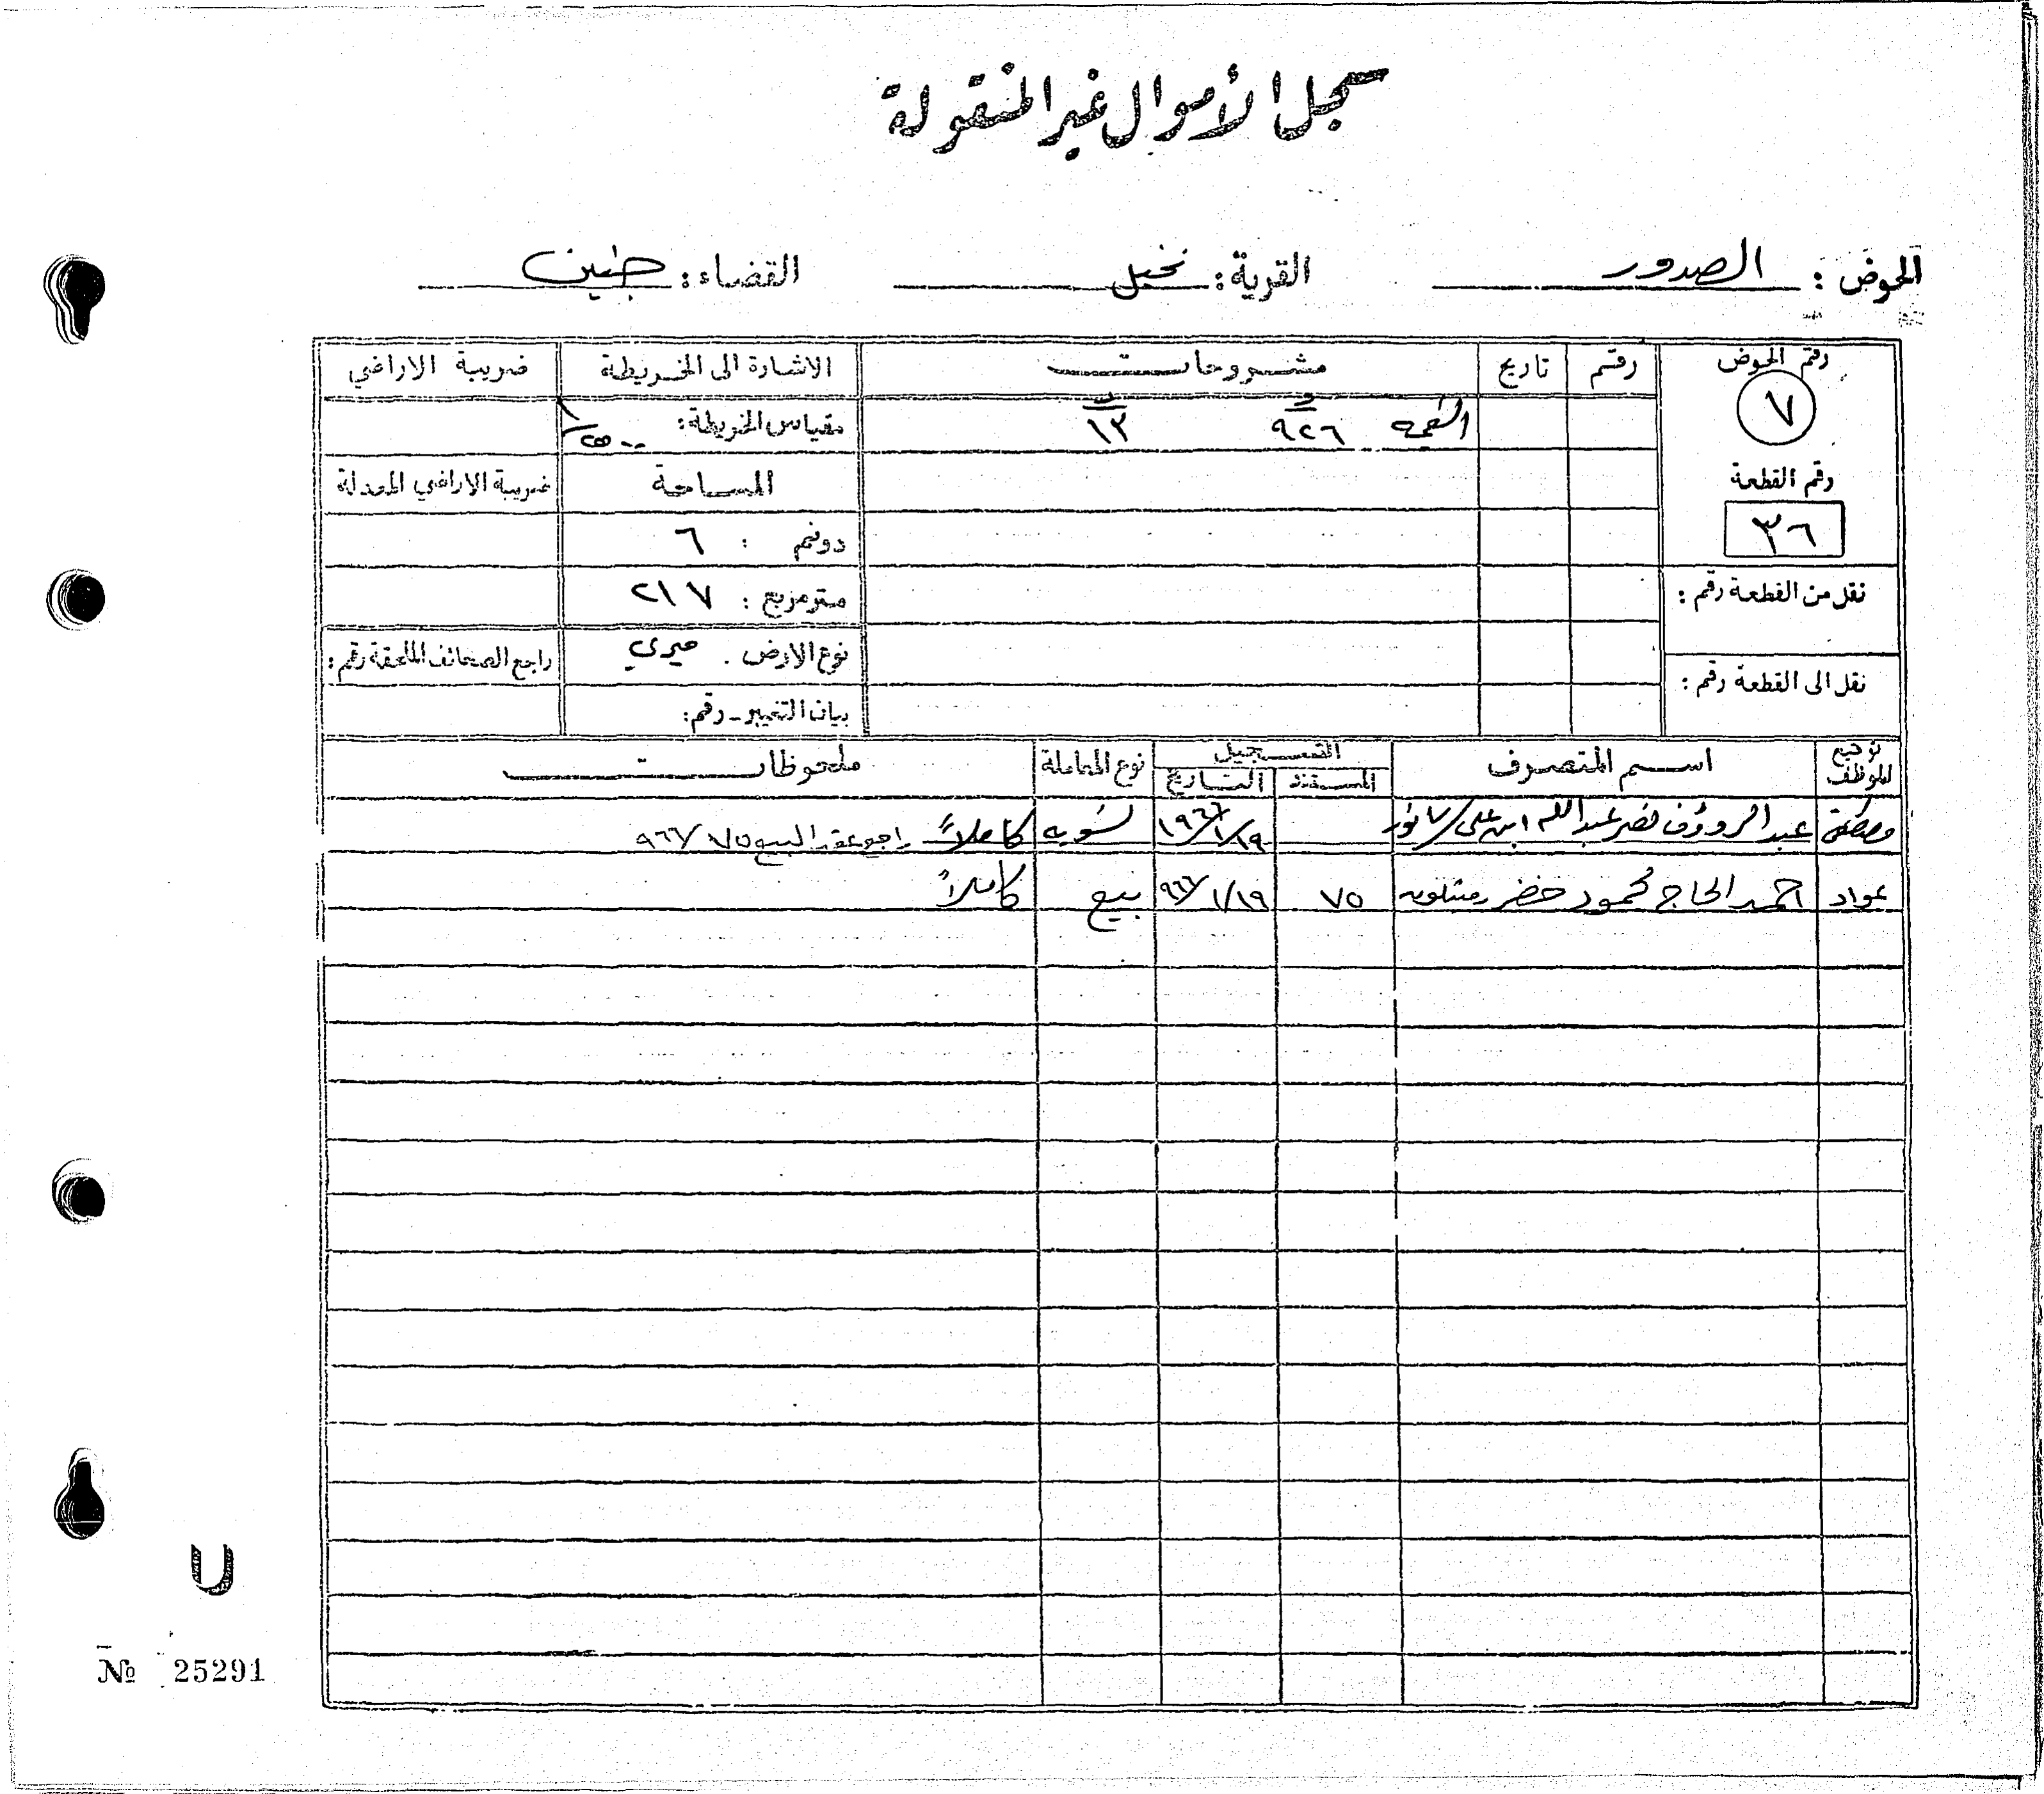 سجل الأموال غير المنقولة
الحوض : الصدور القرية : نخيل القضاء : جنين
رقم الحوض رقم تاريخ مشروحات الاشارة الى الخريطة ضريبة الاراضي
٧ القيمة ٩٢٦ ١٢ مقياس الخريطة : ١/٢٥٠٠
رقم القطعة المساحة ضريبة الاراضي المعدلة
٣٦ دونم : ٦
نقل من القطعة رقم : متر مربع : ٢١٧
نوع الارض . ميري راجع الصحائف الملحقة رقم :
نقل الى القطعة رقم : بيان التغيير - رقم :
توقيع الموظف اسم المتصرف التسجيل نوع المعاملة ملحوظات
المستند التاريخ
عبد الرؤوف نصر عبدالله ابن علي / سانور ١٩٦٦/١/١٩ تسويه كاملاً راجع عقد البيع ٩٦٧/٧٥
عواد احمد الحاج محمود خضر ٧٥ ٩٦٧/١/١٩ بيع كاملاً
№ 25291